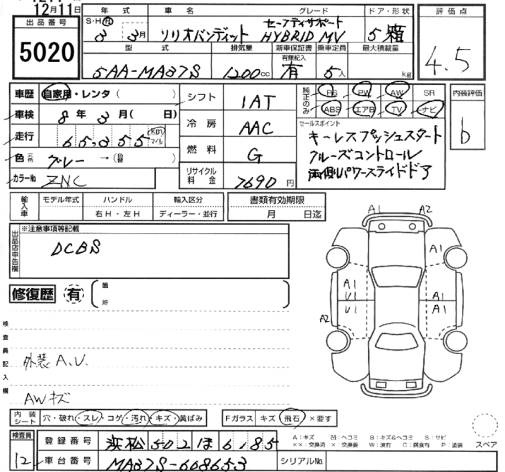 12月11日
出品番号
5020
年式 車名 グレード ドア・形状
S・H・R 3年 3月 ソリオバンディット セーフティサポート HYBRID MV 5 箱
型式 排気量 新車保証書 乗車定員 最大積載量
有無記入
5AA-MA37S 1200cc 有 5人 kg
評価点
4.5
車歴 自家用・レンタ( )
車検 8年 3月( 日)
走行 65,355 Km マイル
色 元色 グレー →(替色 )
カラー№ ZNC
シフト 1AT
冷房 AAC
燃料 G
リサイクル料金 7690円
純正のみ PS PW AW SR
ABS エアB TV ナビ
セールスポイント
キーレスプッシュスタート
クルーズコントロール
両側パワースライドドア
内装評価
b
輸入車 モデル年式 ハンドル 輸入区分 書類有効期限
年 右H・左H ディーラー・並行 月 日迄
出品店申告欄
※注意事項等記載
DCBS
修復歴 有 箇所
検査員記入欄
外装 A.U.
AWキズ
A1 A2
A1
A1 A1
U1 A1
A2
スペア
内装シート 穴・破れ・スレ・コゲ・汚れ・キズ・黄ばみ Fガラス キズ 飛石 ×要す
検査員
12
登録番号 浜松502ほ6185
車台番号 MA37S-668653 シリアル№
A:キズ M:ヘコミ B:キズ&ヘコミ S:サビ
××:交換済 ×:要交換 W:波打 C:腐食有 P:塗装